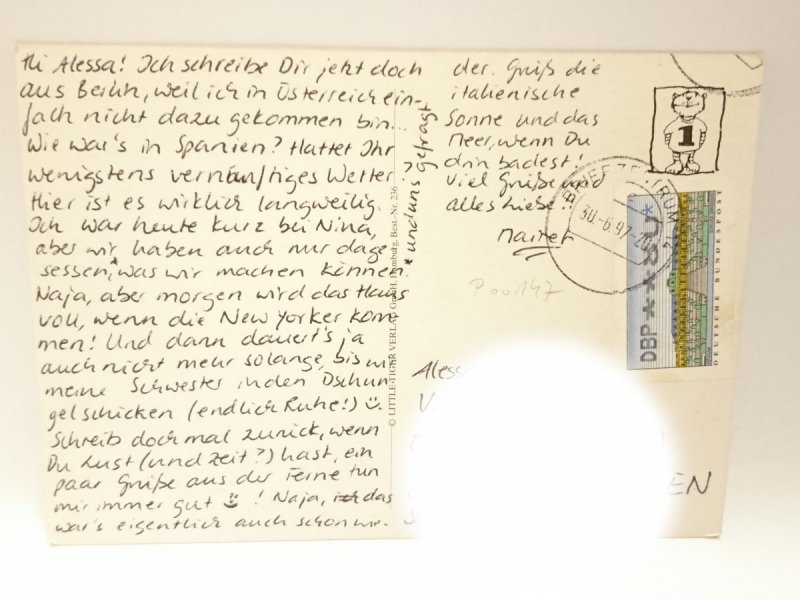 Hi Alessa! Ich schreibe Dir jetzt doch
aus Berlin, weil ich in Österreich ein-
fach nicht dazu gekommen bin...
Wie war's in Spanien? Hattet Ihr
wenigstens vernünftiges Wetter?
Hier ist es wirklich langweilig.
Ich war heute kurz bei Nina,
aber wir haben auch nur dage-
sessen,* was wir machen können.
Naja, aber morgen wird das Haus
voll, wenn die New Yorker kom-
men! Und dann dauert's ja
auch nicht mehr so lange, bis wir
meine Schwester in den Dschun-
gel schicken (endlich Ruhe!)
Schreib doch mal zurück, wenn
Du Lust (und Zeit?) hast, ein
paar Grüße aus der Ferne tun
mir immer gut ! Naja, das
war's eigentlich auch schon wie-
der. Grüß die
italienische
Sonne und das
Meer, wenn Du
drin badest!
Viel Grüße und
alles Liebe!
* und uns gefragt
© LITTLE-TIGER VERLAG GmbH, Hamburg, Best.-Nr. 236
1
BRIEFZENTRUM
30.-6.97-20
DBP
DEUTSCHE BUNDESPOST
P 00147
Aless
EN